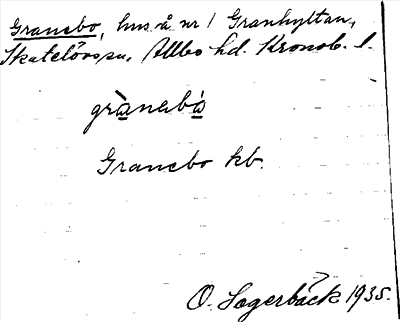 Granebo, hus å nr 1 Granhyltan,
Skatelövs sn, Allbo hd. Kronob. l.
grànabò
Granebo kb.
O. Sagerbäck 1935.